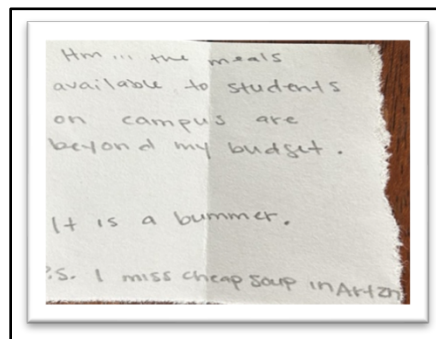 Hm... the meals
available to students
on campus are
beyond my budget.
It is a bummer.
P.S. I miss cheap soup in